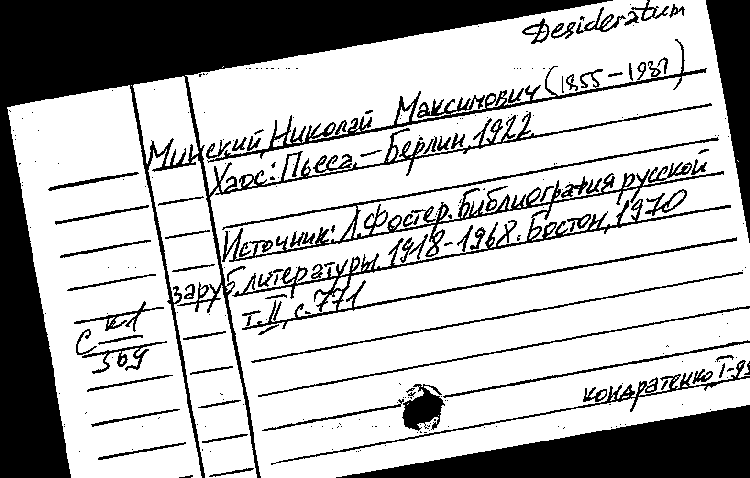 Desideratum
Минский, Николай Максимович (1855-1937)
Хаос: Пьеса. - Берлин, 1922
Источник: Л. Фостер. Библиография русской
заруб. литературы. 1918-1968. Бостон, 1970
т. II, с. 771
с к1
569
Кондратенко, I-93